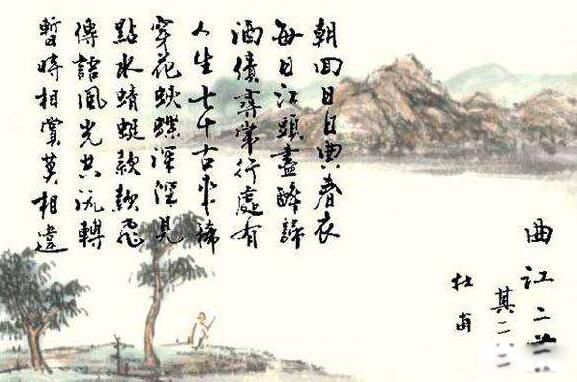 曲江二
其二
杜甫
朝回日日典春衣
每日江頭盡醉歸
酒債尋常行處有
人生七十古來稀
穿花蛺蝶深深見
點水蜻蜓款款飛
傳語風光共流轉
暫時相賞莫相違